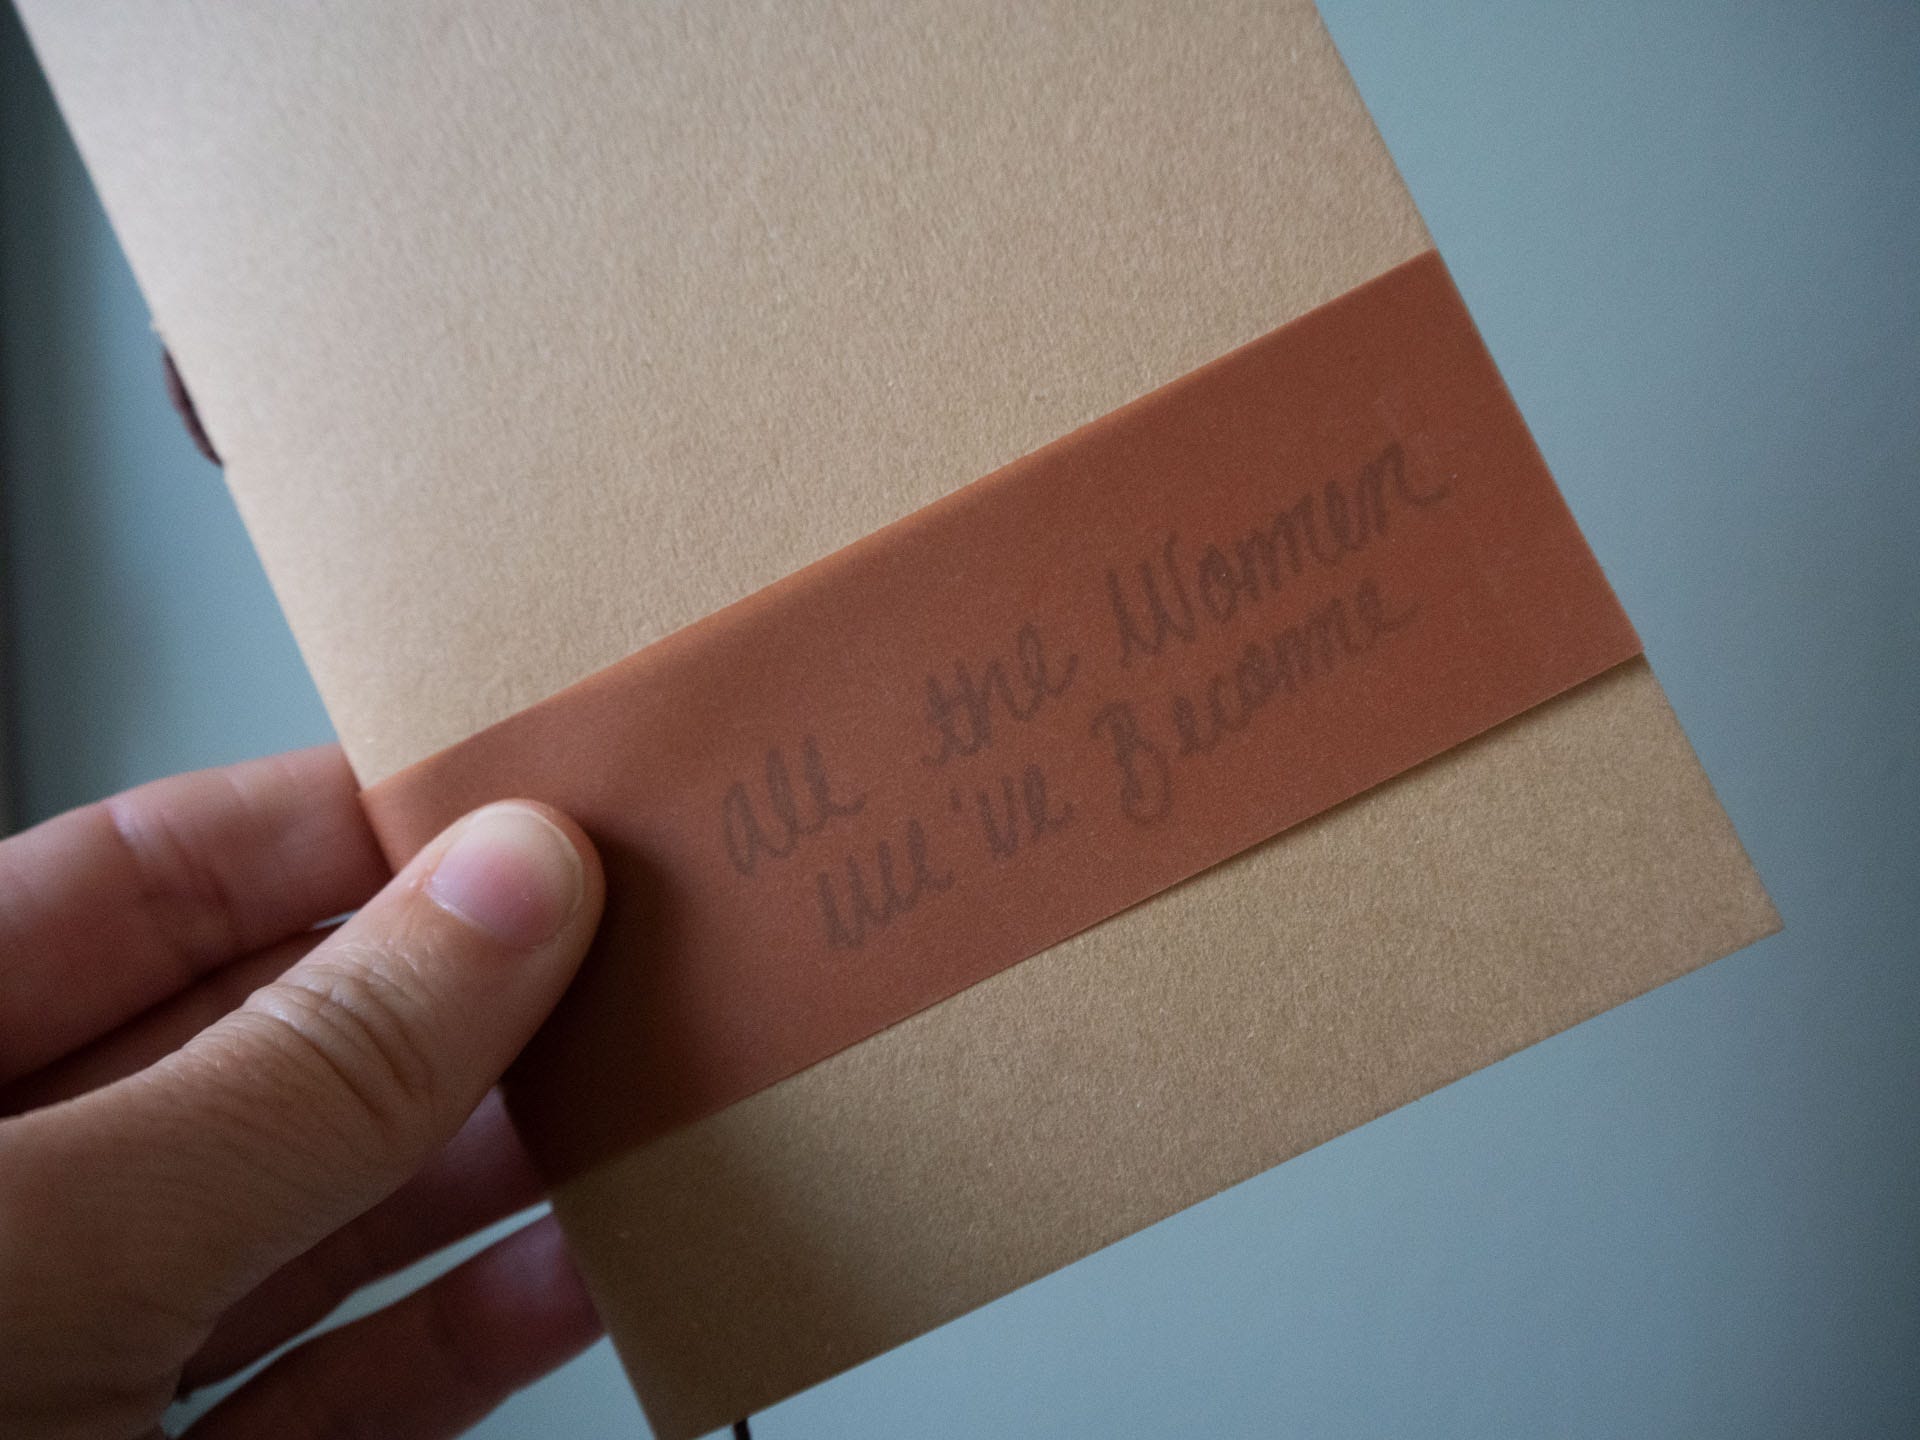 all the Women
we've Become